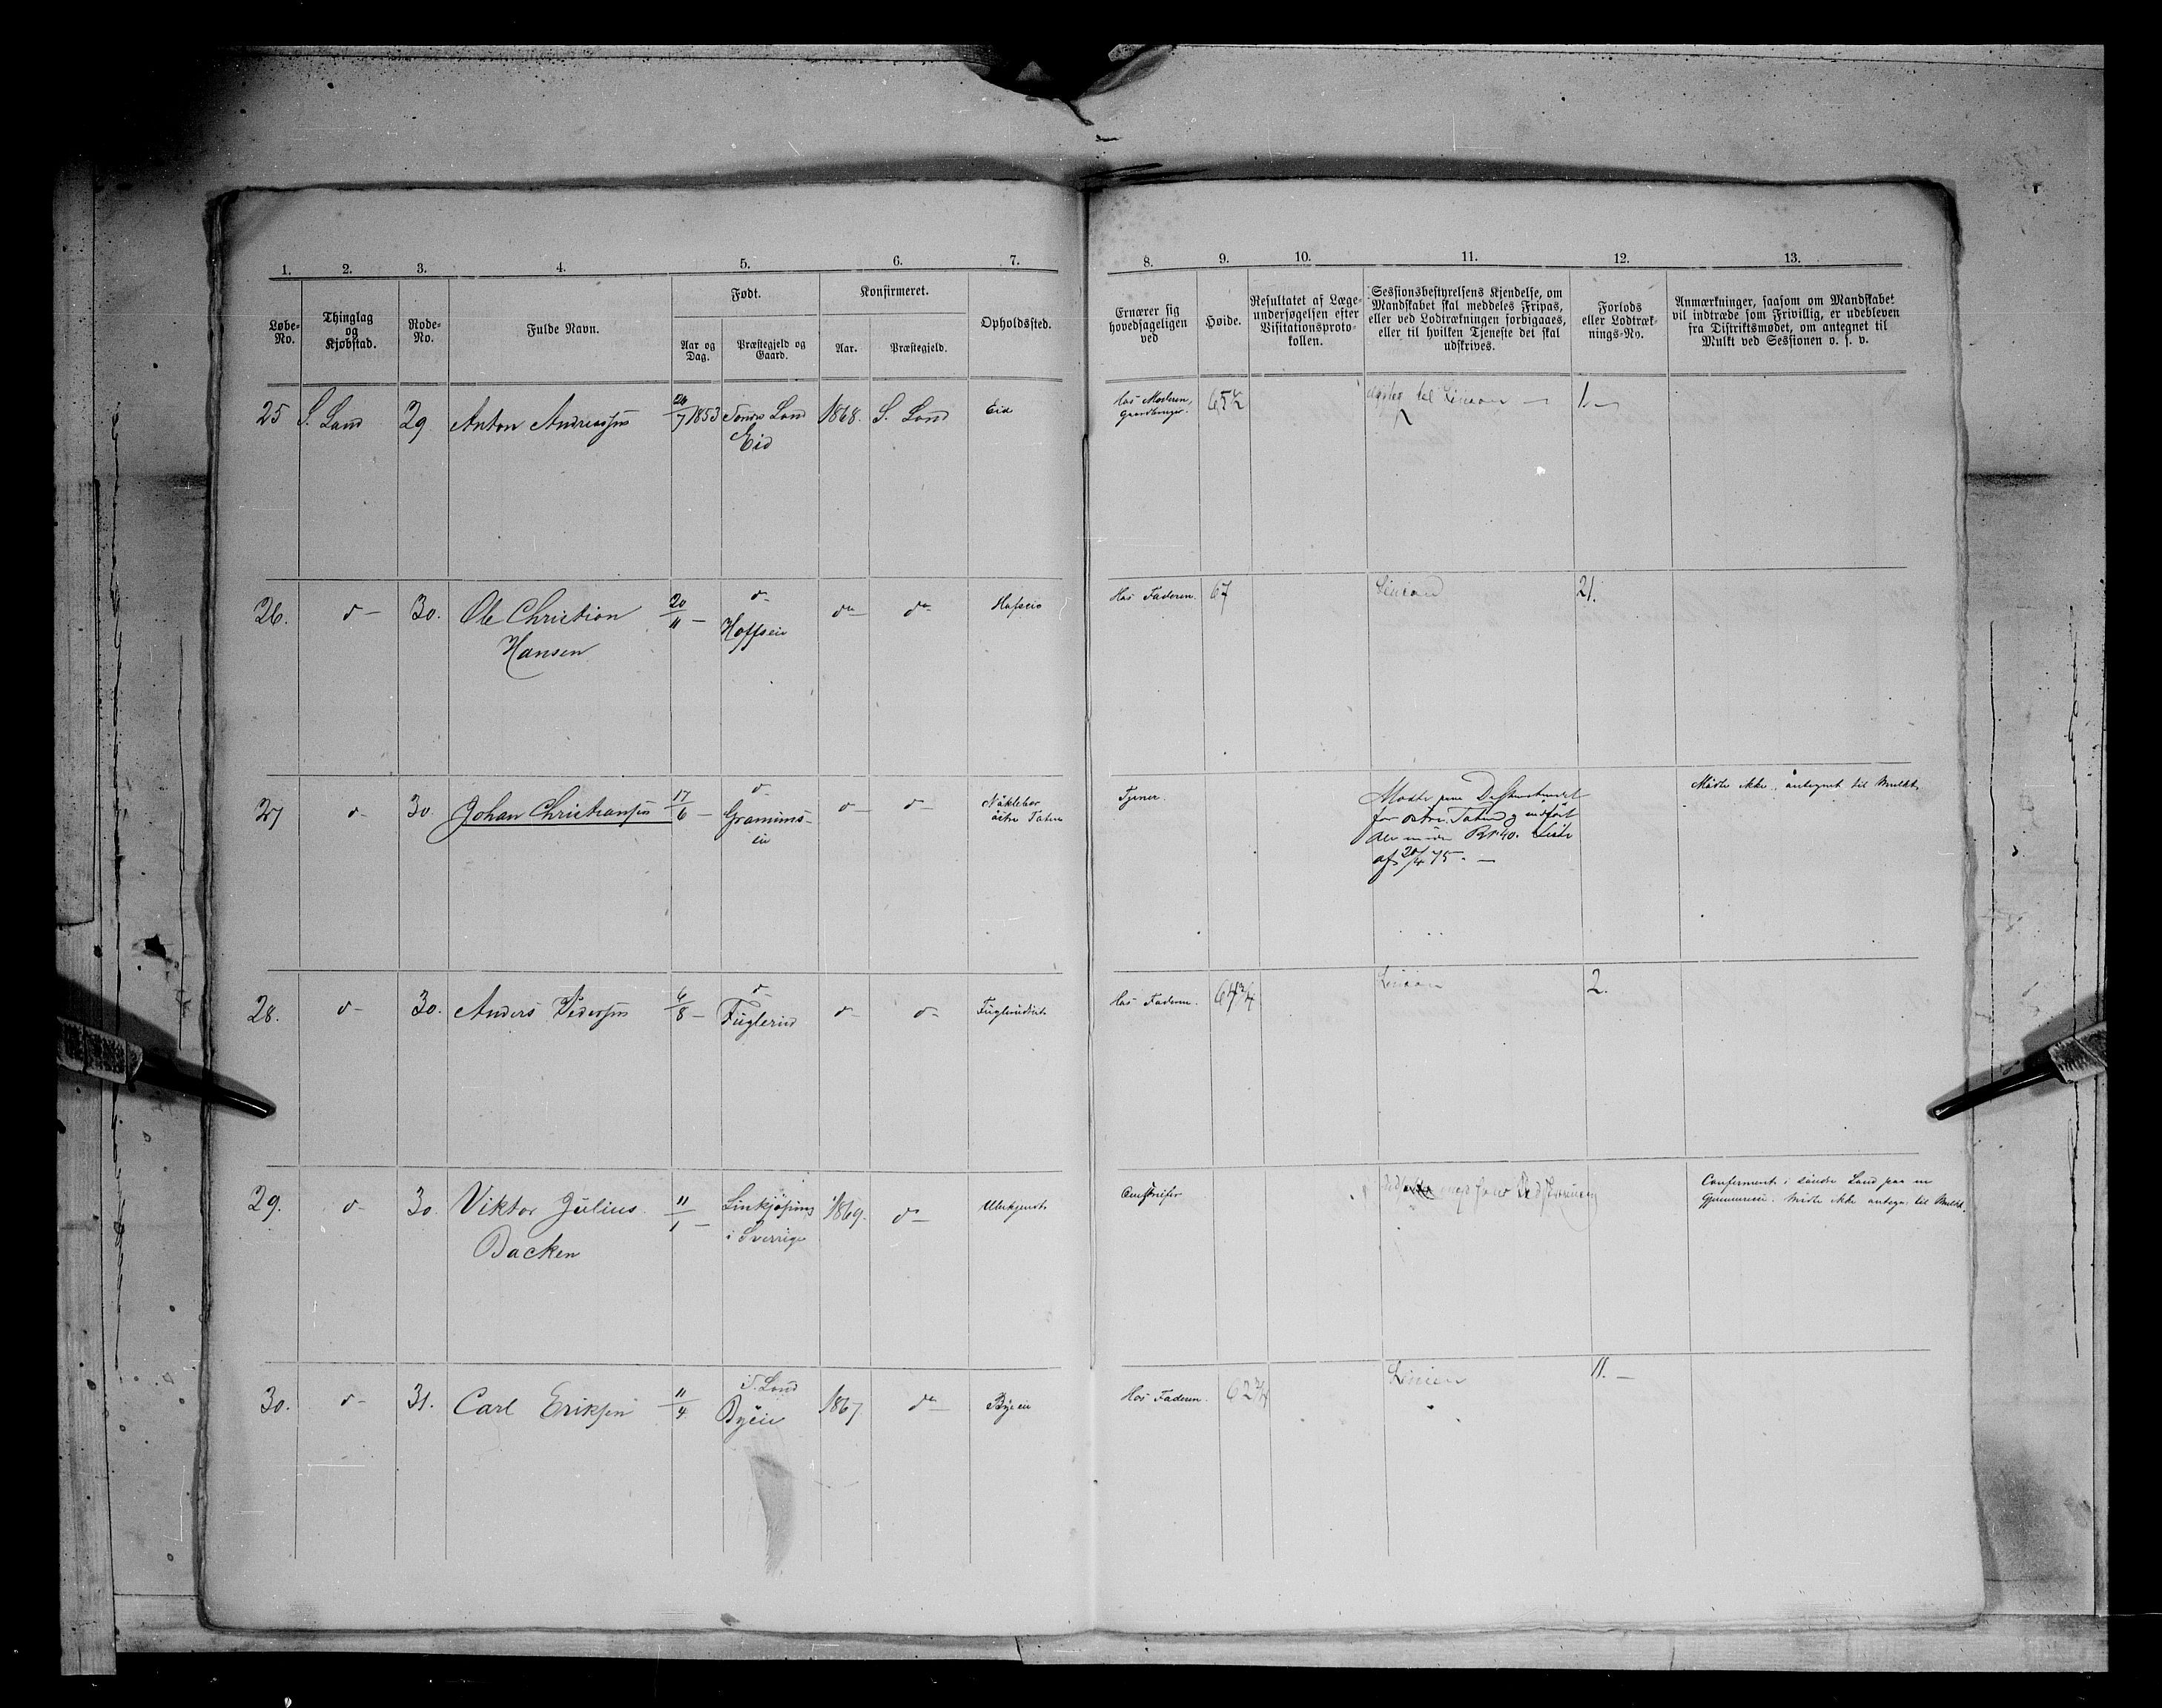 1. 2. 3. 4. 5. 6. 7. 8. 9. 10. 11. 12. 13.
Løbe-
No.
Thinglag
og
Kjøbstad.
Rode-
No.
Fulde Navn.
Født.
Aar og
Dag.
Præstegjeld og
Gaard.
Konfirmeret.
Aar.
Præstegjeld.
Opholdssted.
Ernærer sig
hovedsageligen
ved
Høide.
Resultatet af Læge-
undersøgelsen efter
Visitationsproto-
kollen.
Sessionsbestyrelsens Kjendelse, om
Mandskabet skal meddeles Fripas,
eller ved Lodtrækningen forbigaaes,
eller til hvilken Tjeneste det skal
udskrives.
Forlods
eller Lodtræk-
nings-No.
Anmærkninger, saasom om Mandskabet
vil indtræde som Frivillig, er udebleven
fra Distriktsmødet, om antegnet til
Mulkt ved Sessionen o. s. v.
25 S. Land 29 Anton Andreassen 26/7 1853 Søndre Land 1868. S. Land Eid Hos Moderen, 65½ til Linien — 1 —
Eid Gaardbruger.
26. d— 30. Ole Christian 20/11 — d— do— do— Hofseie Hos Faderen. 67 Linien 21.
Hansen Hoffseie
27 d— 30. Johan Christiansen 17/6 — d— d— d— Tjener Møtte paa
Gramms-
eie
for østre Toten og
af 20/4 75. —
Mødte ikke, antegnet til Mulkt.
28. d— 30. Anders Pedersen 6/8 — d— d— d— Hos Faderen. 64¾ Linien 2.
Fuglerud
29. d— 30. Viktor Julius 11/1 — Linkjøping 1869. do— Ubekjendt
Backen i Sverrige
Confirmeret i søndre Land paa en
Mødte ikke antegn. til Mulkt.
30. d— 31. Carl Eriksen 11/4 — S. Land 1867 do— Byeie Hos Faderen. 62¾ Linien 11. —
Byeie